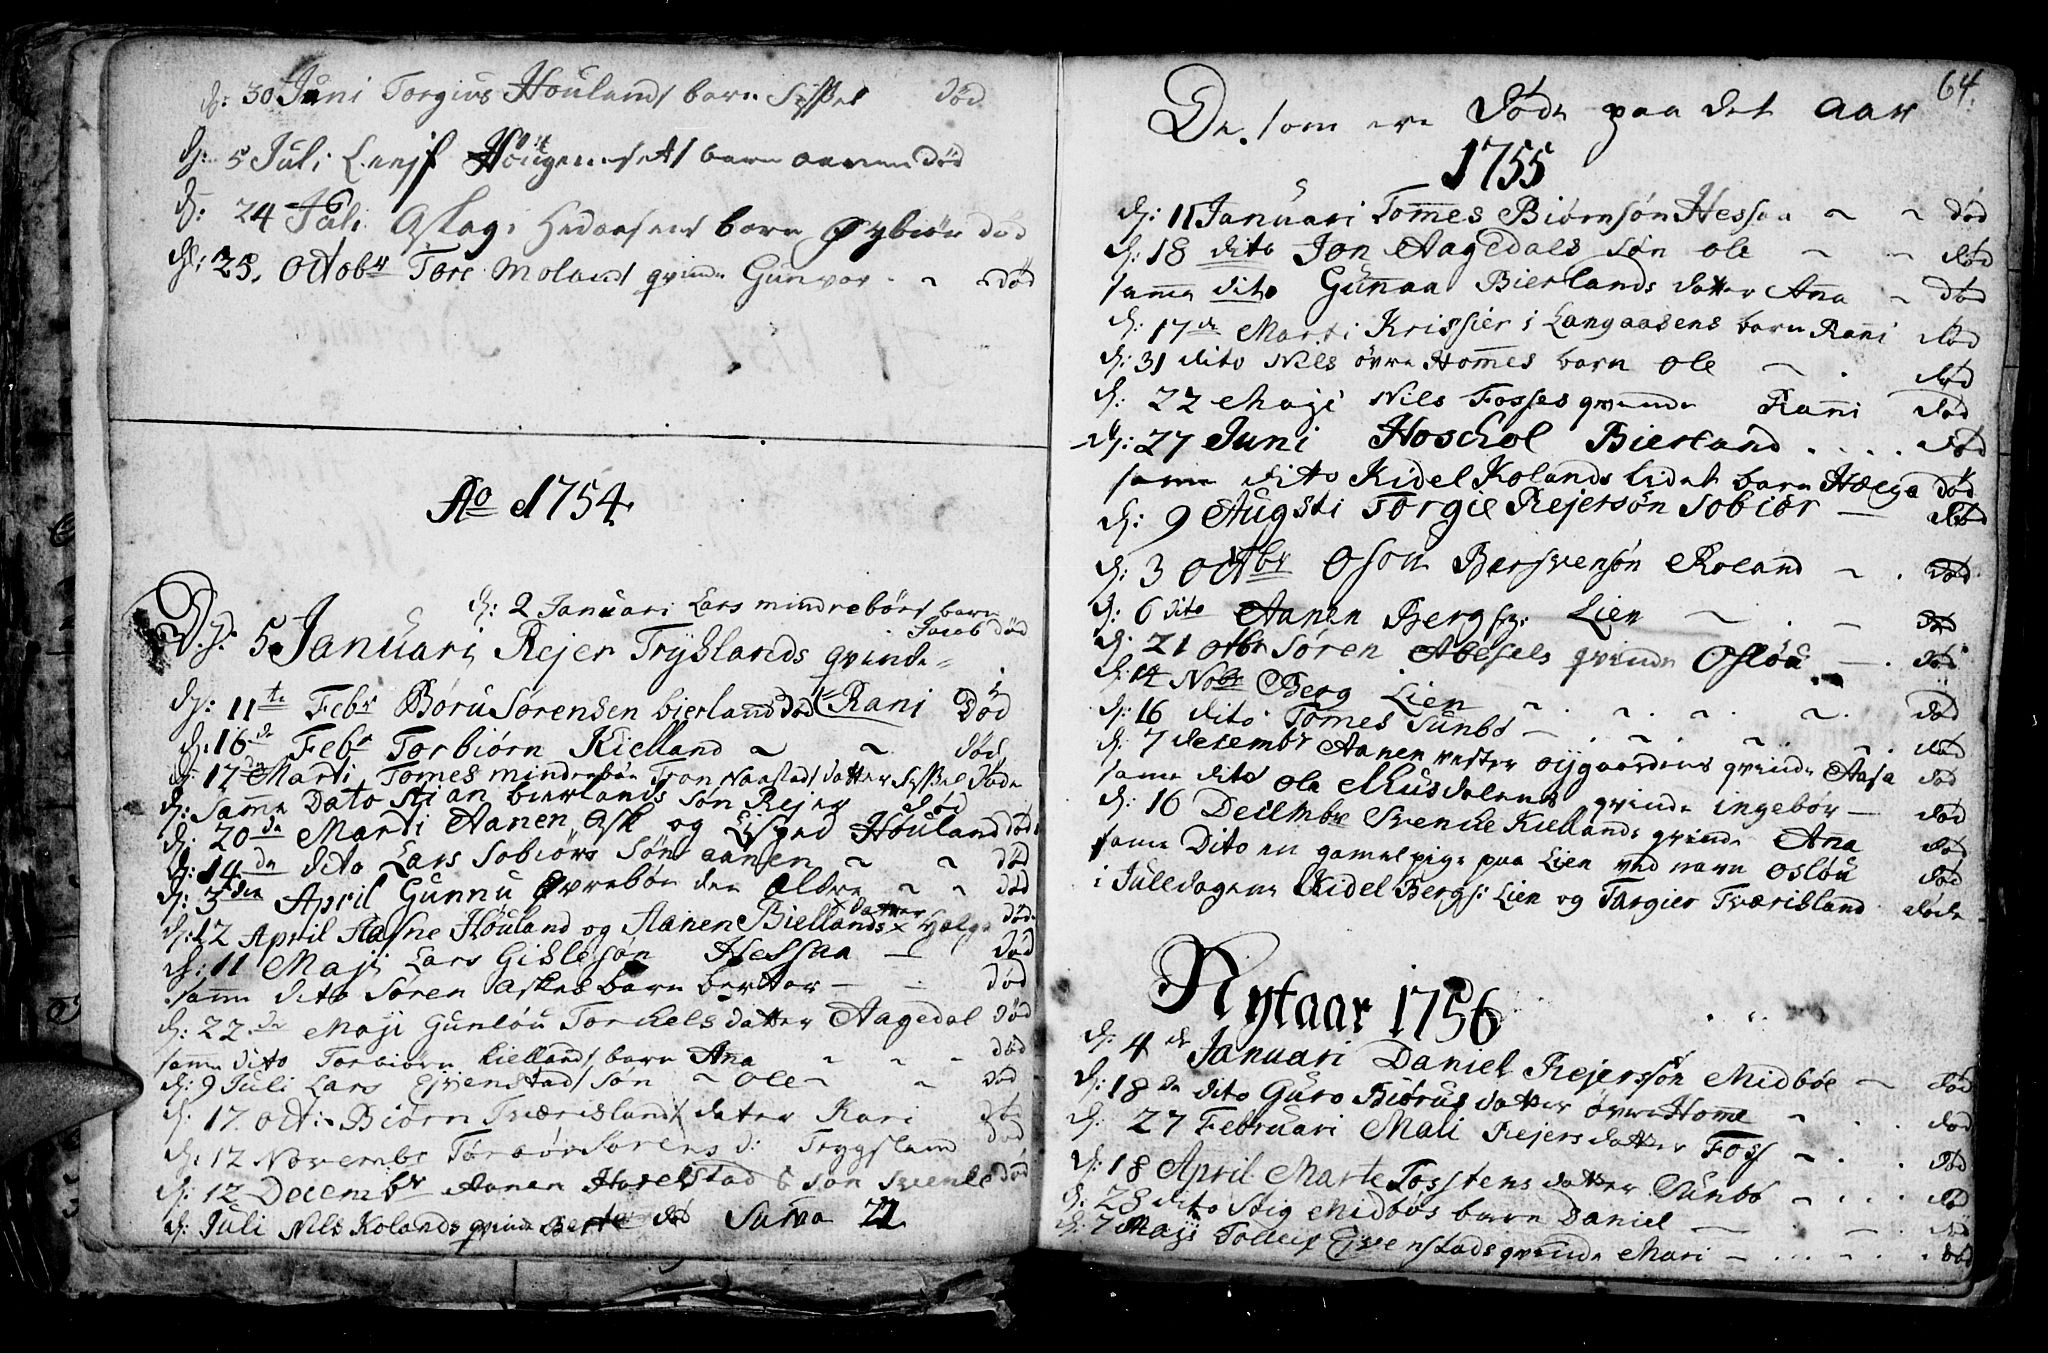 d: 30 Juni Torgius Houlands barn Sissel død
d: 5 Juli Leejf barn aanen død
d: 24 Juli Aslag barn Øybiør død
d: 25. Octobr Tore Molands qvinde Gunvor - ~ ~ død
Ao 1754
d: 2 Januari Lars mindrebøes barn
Jacob død
D. d: 5 Januari Rejer Tryslands qvinde =
d: 11te Febr Børu Sørensen bierland død Rani Død
d: 16de Febr Torbiørn Kielland ~ ~ død
d: 17de Marti Tomes mindrebøe Naastads datter Sissel døde
d: Samme Dato Stian bierlands søn Rejer død
d: 20de Marti Aanen Ask og Houland død
d: 14de dito Lars Sobiørs søn aanen ~ ~ død
d: 3den April Gunnu Øvrebøe den Eldre ~ ~ død
d: 12 April Aasne Houland og Aanen Biellands datter Helge død
d: 11 Maji Lars Gislesøn Hessaa — død
samme dito Søren Askes barn bertor — - død
d: 22de Maji Gunløu Torkels datter Aagedal død
samme dito Torbiørn Kiellands barn Ana ~ ~ - død
d: 9 Juli Lars Ejvenstads søn ~ Ole ~ ~ død
d: 17 oct: Biørn Tværislands dater Kari død
d: 12 Novembr Sørens d: Trygsland død
d: 12 Decembr Aanen Harelstad s søn Svenke død
d: Juli Nils Kolands qvinde Berte død Suma 22
64.
De som ere døde paa det aar
1755
d: 11 Januari Tomes Biørnsøn Hessaa ~ ~ død
d: 18 dito Jon Aagedals søn ole ~ ~ død
samme dito Gunaa Bierlands datter Ana ~ død
d: 17de Marti Krissier i Langaasens barn Rani død
d: 31 dito Nils øvre Homes barn Ole ~ . død
d: 22 Maji Nils Fosses qvinde Rani død
d: 27 Juni Hoschol Bierland . . . . død
samme dito Kidel Kolands lidet barn Hælga død
d: 9 Augsti Torgie Rejersøn Sobiør — død
d: 3 Octbr Oson Bersvensøn Røland ~ . død
d: 6 dito Aanen Berg sø: Lien ~ . — død
d: 21 otbr Søren Abesels qvinde Osløu — . død
d: 14 Nobr Berg Lien ~ . ~ . ~ . ~ . død
d: 16 dito Tomes Sunbø — . ~ . ~ . død
d: 7 desembr Aanen vester øygaardens qvinde Aasa død
samme dito Ole Musdalens qvinde ingebør — død
d: 16 Decembr Svenke Kiellands qvinde Ana død
samme Dito en gamel pige paa Lien ved navn osløu død
i Juledagene Kidel Bergs: Lien og Targier Tværisland døde
Nytaar 1756
d: 4de Januari Daniel Rejersøn Midbøe ~ død
d: 18de dito Guro Biørus datter øvre Home ~ . . død
d: 27 Februari Mali Rejers datter Foss ~ . . . død
d: 18 April Marte Tosstens datter Sunbø ~ . . . død
d: 28 dito Stig Midbøs barn Daniel — — . — . død
d: 7 Maji Tollef Ejvenstads qvinde Mari — . . . ~ . død